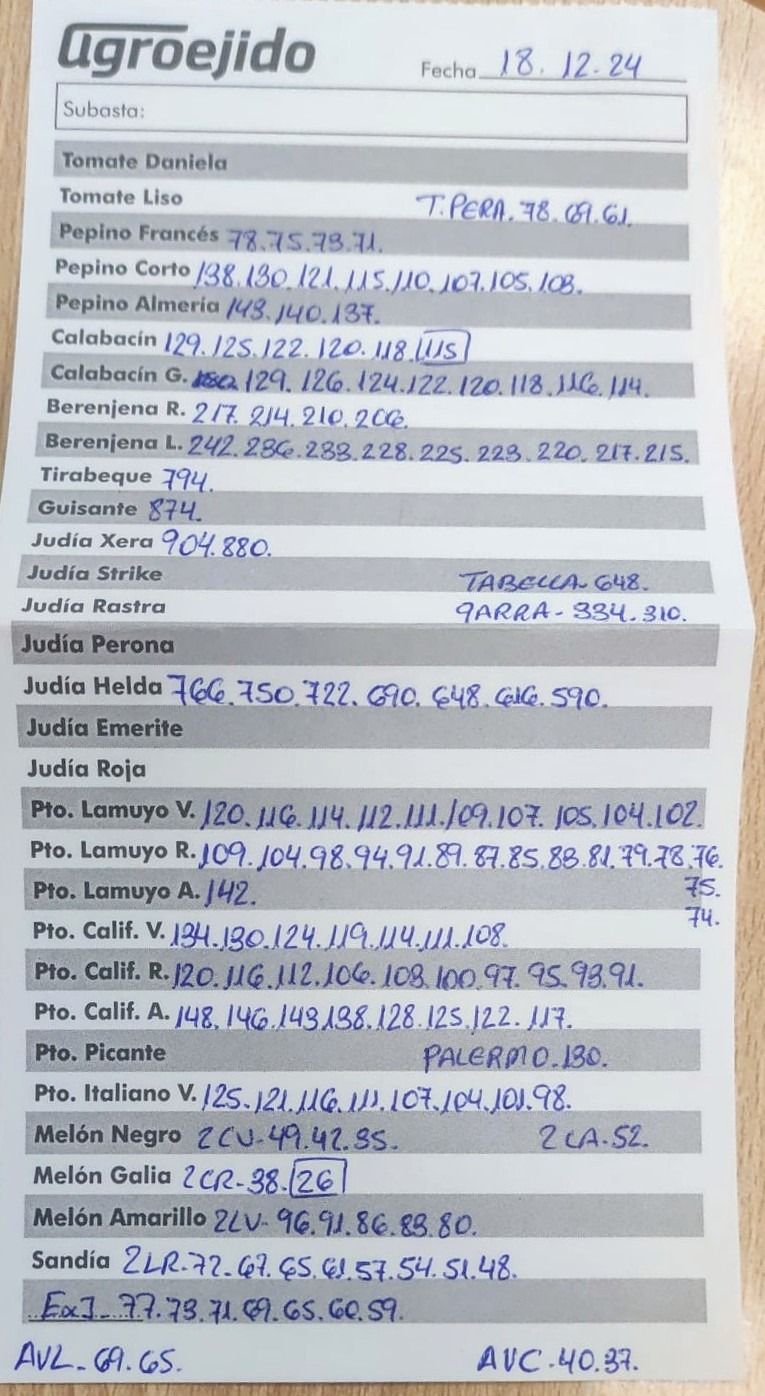 agroejido
Fecha 18.12.24
Subasta:
Tomate Daniela
Tomate Liso T.PERA.78.69.61.
Pepino Francés 78.75.73.71.
Pepino Corto 138.130.121.115.110.107.105.103.
Pepino Almería 143.140.137.
Calabacín 129.125.122.120.118.115
Calabacín G. 129.126.124.122.120.118.116.114.
Berenjena R. 217.214.210.206.
Berenjena L. 242.236.233.228.225.223.220.217.215.
Tirabeque 794.
Guisante 874.
Judía Xera 904.880.
Judía Strike TABELLA-648.
Judía Rastra GARRA-334.310.
Judía Perona
Judía Helda 766.750.722.690.648.616.590.
Judía Emerite
Judía Roja
Pto. Lamuyo V. 120.116.114.112.111.109.107.105.104.102.
Pto. Lamuyo R. 109.104.98.94.91.89.87.85.83.81.79.78.76.
75.
Pto. Lamuyo A. 142.
74.
Pto. Calif. V. 134.130.124.119.114.111.108.
Pto. Calif. R. 120.116.112.106.103.100.97.95.93.91.
Pto. Calif. A. 148.146.143.138.128.125.122.117.
Pto. Picante PALERMO.130.
Pto. Italiano V. 125.121.116.111.107.104.101.98.
Melón Negro 2CV-49.42.35. 2CA-52.
Melón Galia 2CR-38.26
Melón Amarillo 2LV-96.91.86.83.80.
Sandía 2LR-72-67.65.61.57.54.51.48.
77.73.71.69.65.60.59.
AVL-69.65. AVC-40.37.